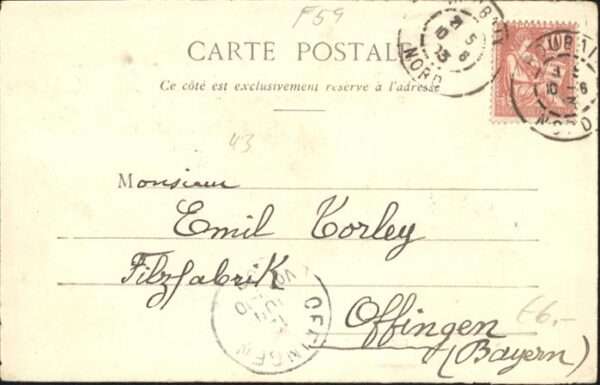 F59
CARTE POSTALE
Ce côté est exclusivement réservé à l'adresse
43
Monsieur
Emil Torley
Filzfabrik
Offingen
(Bayern)
€6.-
ROUBAIX
NORD
OFFINGEN